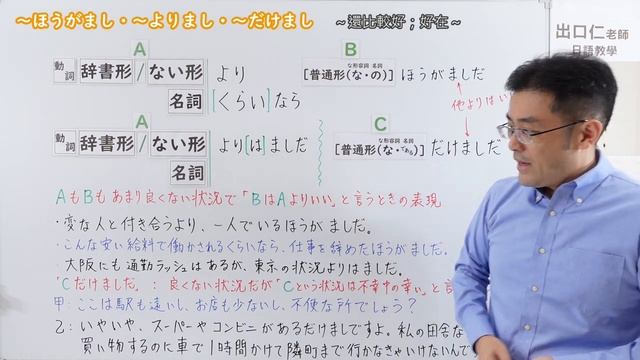 ～ほうがまし・～よりまし・～だけまし ～還比較好；好在～
出口仁老師
日語教學
A B
動詞 辞書形/ない形 より [普通形(な・の)]ほうがましだ
な形容詞 名詞
名詞[くらい]なら
他よりはい
A C
動詞 辞書形/ない形 より[は]ましだ [普通形(な・である)]だけましだ
な形容詞 名詞
名詞
AもBもあまり良くない状況で「BはAよりいい」と言うときの表現
・変な人と付き合うより、一人でいるほうがましだ。
・こんな安い給料で働かされるくらいなら、仕事を辞めたほうがましだ。
・大阪にも通勤ラッシュはあるが、東京の状況よりはましだ。
「Cだけましだ。：良くない状況だが「Cという状況は不幸中の幸い」と言
甲：ここは駅も遠いし、お店も少ないし、不便な所でしょう？
乙：いやいや、スーパーやコンビニがあるだけましですよ。私の田舎な
買い物するのに車で1時間かけて隣町まで行かなきゃいけないんで